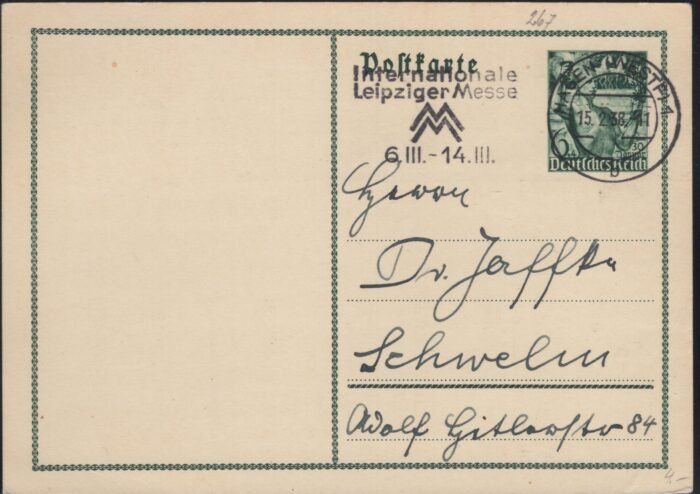 267
Postkarte
Internationale
Leipziger Messe
6.III.-14.III.
HAGEN (WESTF) 1
15.2.38.-11
g
6
30. Januar
Deutsches Reich
Herrn
Dr. Jaffke
Schwelm
Adolf Hitlerstr 84
4.-